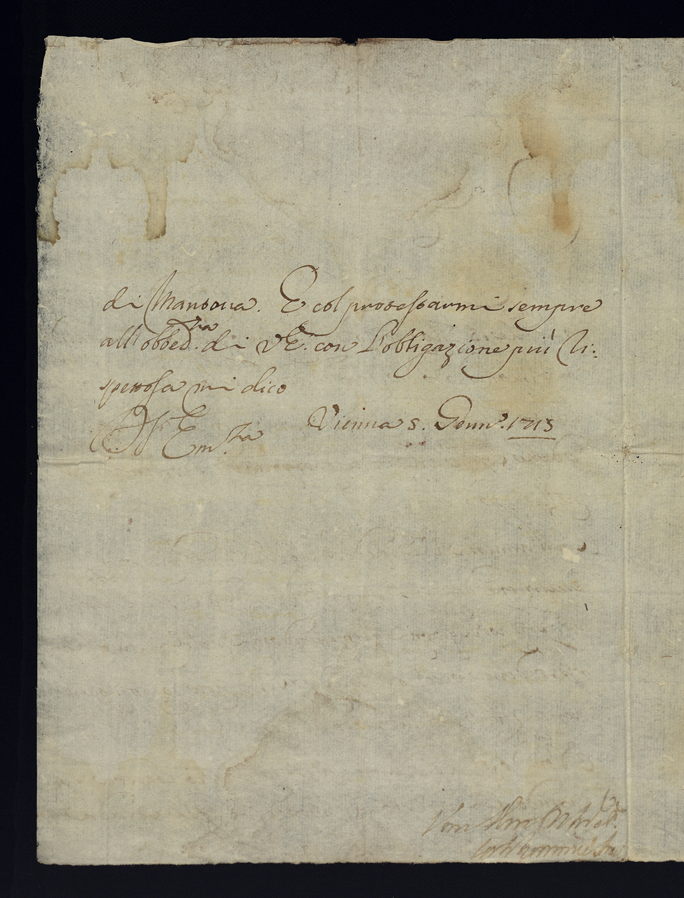 di Mantova. E col protestarmi sempre
all'obbed.za di VE. con L'obligazione più ri:
spettosa mi dico
Em.za Vienna 5. Genn.o 1713